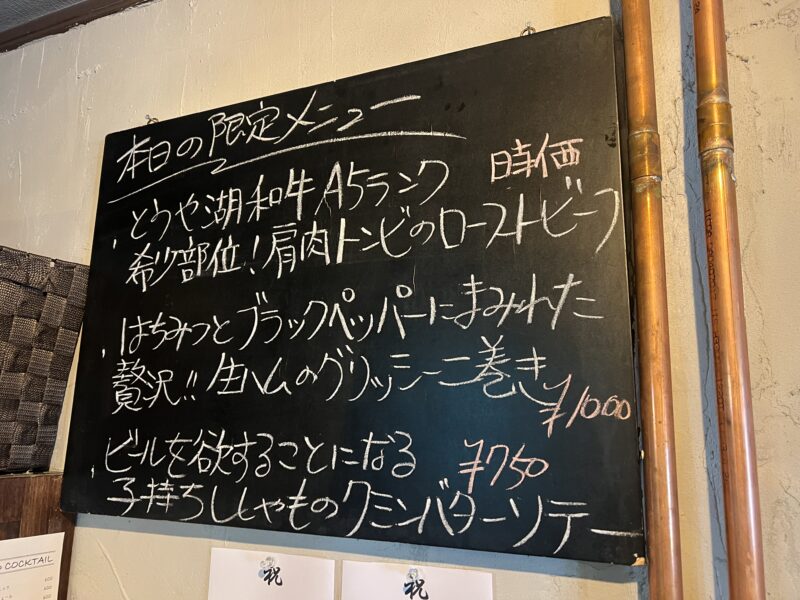 本日の限定メニュー
・とうや湖和牛A5ランク 時価
希少部位!肩肉トンビのローストビーフ
・はちみつとブラックペッパーにまみれた
贅沢!!生ハムのグリッシーニ巻き ¥1000
・ビールを欲することになる ¥750
子持ちししゃものクミンバターソテー
COCKTAIL
祝
祝